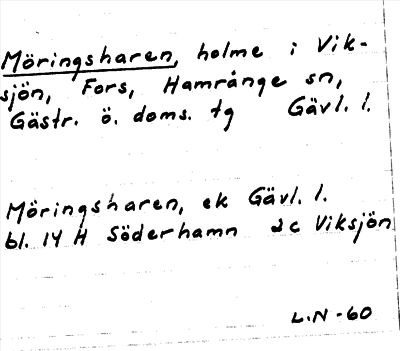 Möringsharen, holme i Vik-
sjön, Fors, Hamrånge sn,
Gästr. ö. doms. tg Gävl. l.
Möringsharen, ek Gävl. l.
bl. 14 H Söderhamn 2c Viksjön
L.N -60